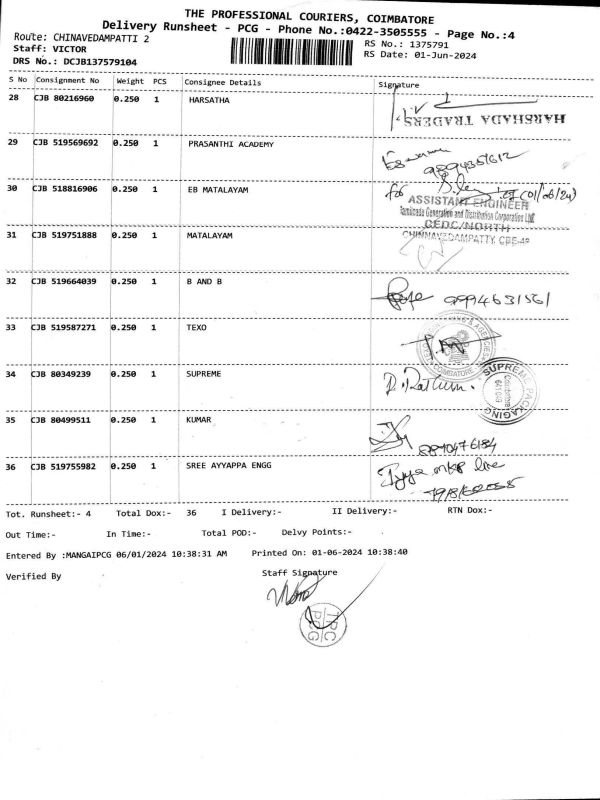 THE PROFESSIONAL COURIERS, COIMBATORE
Delivery Runsheet - PCG - Phone No.:0422-3505555 - Page No.:4
Route: CHINAVEDAMPATTI 2
RS No.: 1375791
Staff: VICTOR
RS Date: 01-Jun-2024
DRS No.: DCJB137579104
S No Consignment No Weight PCS Consignee Details Signature
28 CJB 80216960 0.250 1 HARSATHA
HARSHADA TRADERS
29 CJB 519569692 0.250 1 PRASANTHI ACADEMY
30 CJB 518816906 0.250 1 EB MATALAYAM
for (01/06/24)
ASSISTANT ENGINEER
Tamilnadu Generation and Distribution Corporation Ltd.
CEDC/NORTH
31 CJB 519751888 0.250 1 MATALAYAM
CHINNAVEDAMPATTY, CBE-49
32 CJB 519664039 0.250 1 B AND B
9994631561
33 CJB 519587271 0.250 1 TEXO
P.M
COIMBATORE
34 CJB 80349239 0.250 1 SUPREME
SUPREME PACKAGING
Coimbatore
35 CJB 80499511 0.250 1 KUMAR
8870476184
36 CJB 519755982 0.250 1 SREE AYYAPPA ENGG
Tot. Runsheet:- 4 Total Dox:- 36 I Delivery:- II Delivery:- RTN Dox:-
Out Time:- In Time:- Total POD:- Delvy Points:-
Entered By :MANGAIPCG 06/01/2024 10:38:31 AM Printed On: 01-06-2024 10:38:40
Verified By Staff Signature